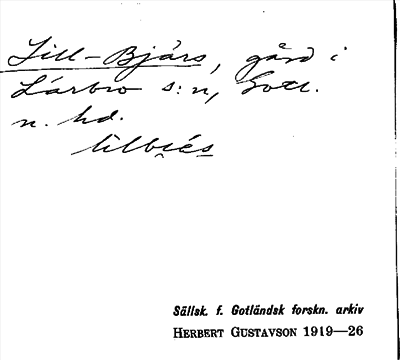 Lill-Bjärs, gård i
Lärbro s:n, Gotl.
n. hd.
lilbiés
Sällsk. f. Gotländsk forskn. arkiv
HERBERT GUSTAVSON 1919—26